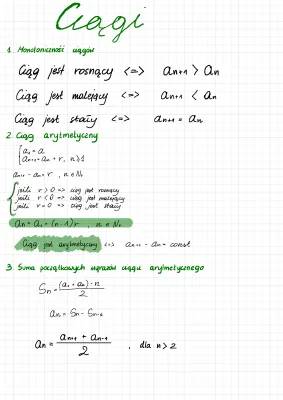 Ciągi
1. Monotoniczność ciągów
Ciąg jest rosnący <=> an+1 > an
Ciąg jest malejący <=> an+1 < an
Ciąg jest stały <=> an+1 = an
2. Ciąg arytmetyczny
{ a1 = a
an+1 = an + r, n ≥ 1
an+1 - an = r, n ∈ N+
{ jeśli r > 0 => ciąg jest rosnący
jeśli r < 0 => ciąg jest malejący
jeśli r = 0 => ciąg jest stały
an = a1 + (n-1)r , n ∈ N+
Ciąg jest arytmetyczny <=> an+1 - an = const
3. Suma początkowych wyrazów ciągu arytmetycznego
Sn = (a1 + an) · n / 2
an = Sn - Sn-1
an = an+1 + an-1 / 2 , dla n > 2